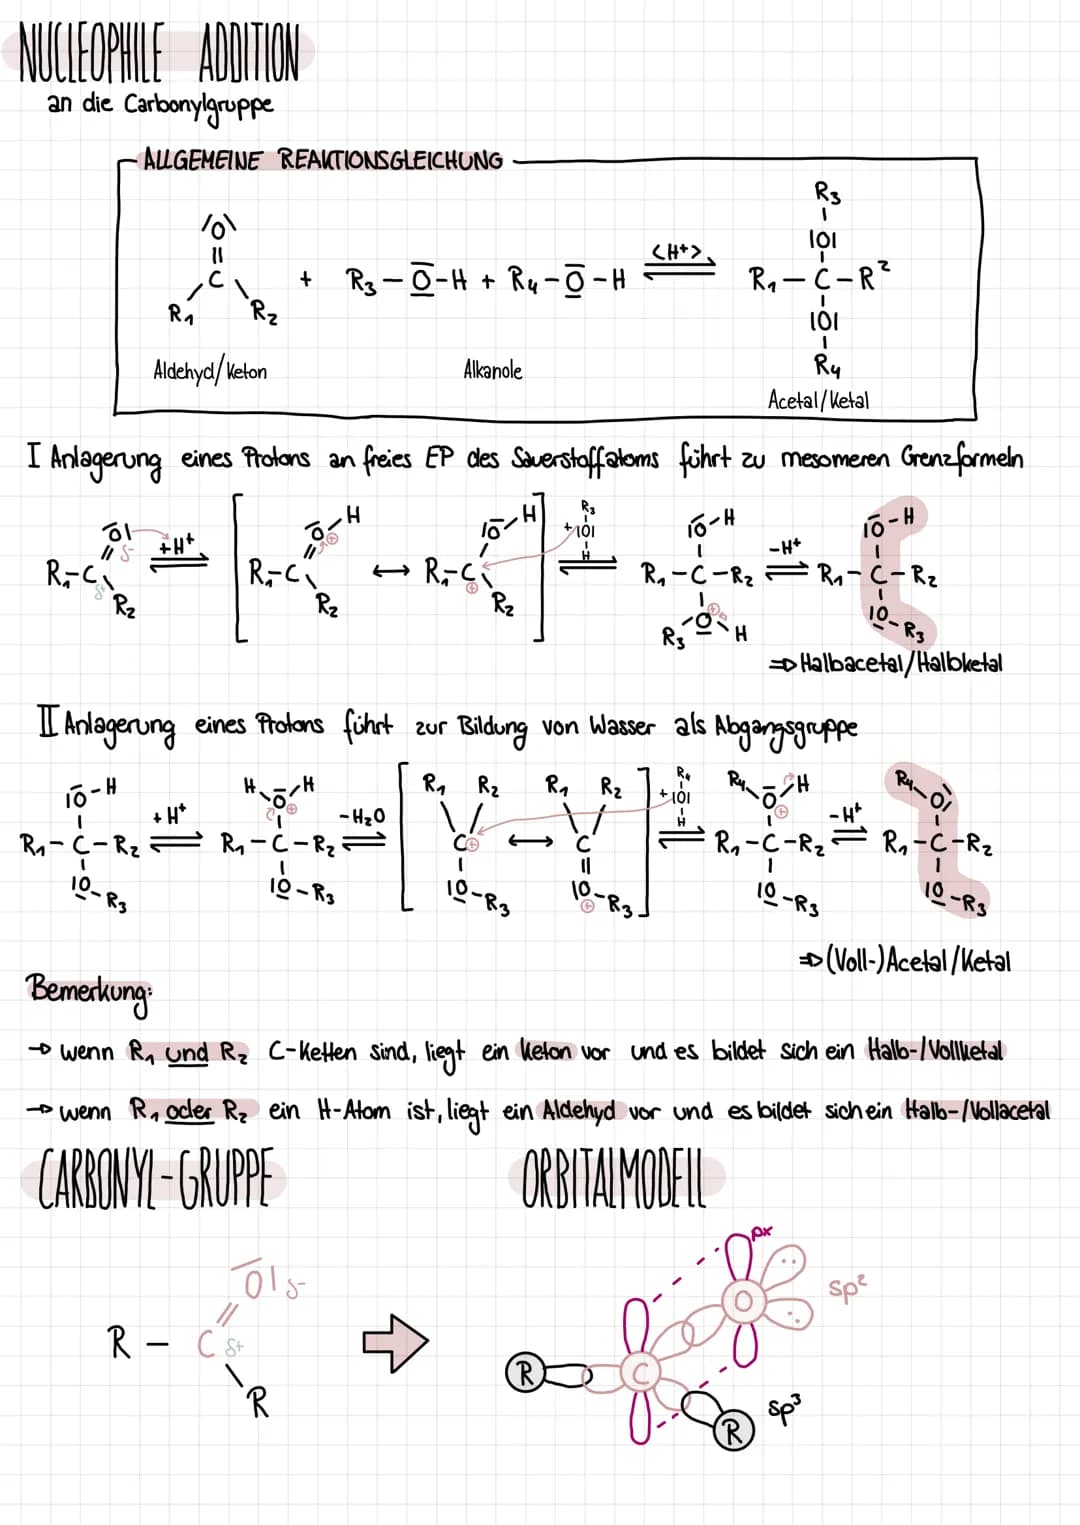 NUCLEOPHILE ADDITION
an die Carbonylgruppe
ALLGEMEINE REAKTIONSGLEICHUNG
R₃
|
|O|
/O\ |
|| <H⁺>
C + R₃ – O – H + R₄ – O – H ⇌ R₁ – C – R²
R₁ R₂ |
|O|
|
R₄
Aldehyd/Keton Alkanole
Acetal/Ketal
I Anlagerung eines Protons an freies EP des Sauerstoffatoms führt zu mesomeren Grenzformeln
O| δ- +H⁺ O – H ⊕ |O – H R₃ +|O| H |O – H |O – H
R₁ – C δ+ ⇌ [ R₁ – C ↔ R₁ – C ⊕ ] ⇌ R₁ – C – R₂ -H⁺ ⇌ R₁ – C – R₂
R₂ R₂ R₂ R₃ – O ⊕ – H |O – R₃
⇒ Halbacetal/Halbketal
II Anlagerung eines Protons führt zur Bildung von Wasser als Abgangsgruppe
|O – H H – O – H ⊕ R₁ R₂ R₁ R₂ R₄ +|O| H R₄ – O – H ⊕ R₄ – O|
R₁ – C – R₂ +H⁺ ⇌ R₁ – C – R₂ -H₂O ⇌ [ C ⊕ ↔ C ] ⇌ R₁ – C – R₂ -H⁺ ⇌ R₁ – C – R₂
|O – R₃ |O – R₃ |O – R₃ |O ⊕ – R₃ |O – R₃ |O – R₃
⇒ (Voll-)Acetal/Ketal
Bemerkung:
→ wenn R₁ und R₂ C-Ketten sind, liegt ein Keton vor und es bildet sich ein Halb-/Vollketal
→ wenn R₁ oder R₂ ein H-Atom ist, liegt ein Aldehyd vor und es bildet sich ein Halb-/Vollacetal
CARBONYL-GRUPPE ORBITALMODELL
px
O| δ- O sp²
R – C δ+ R C
R R sp³